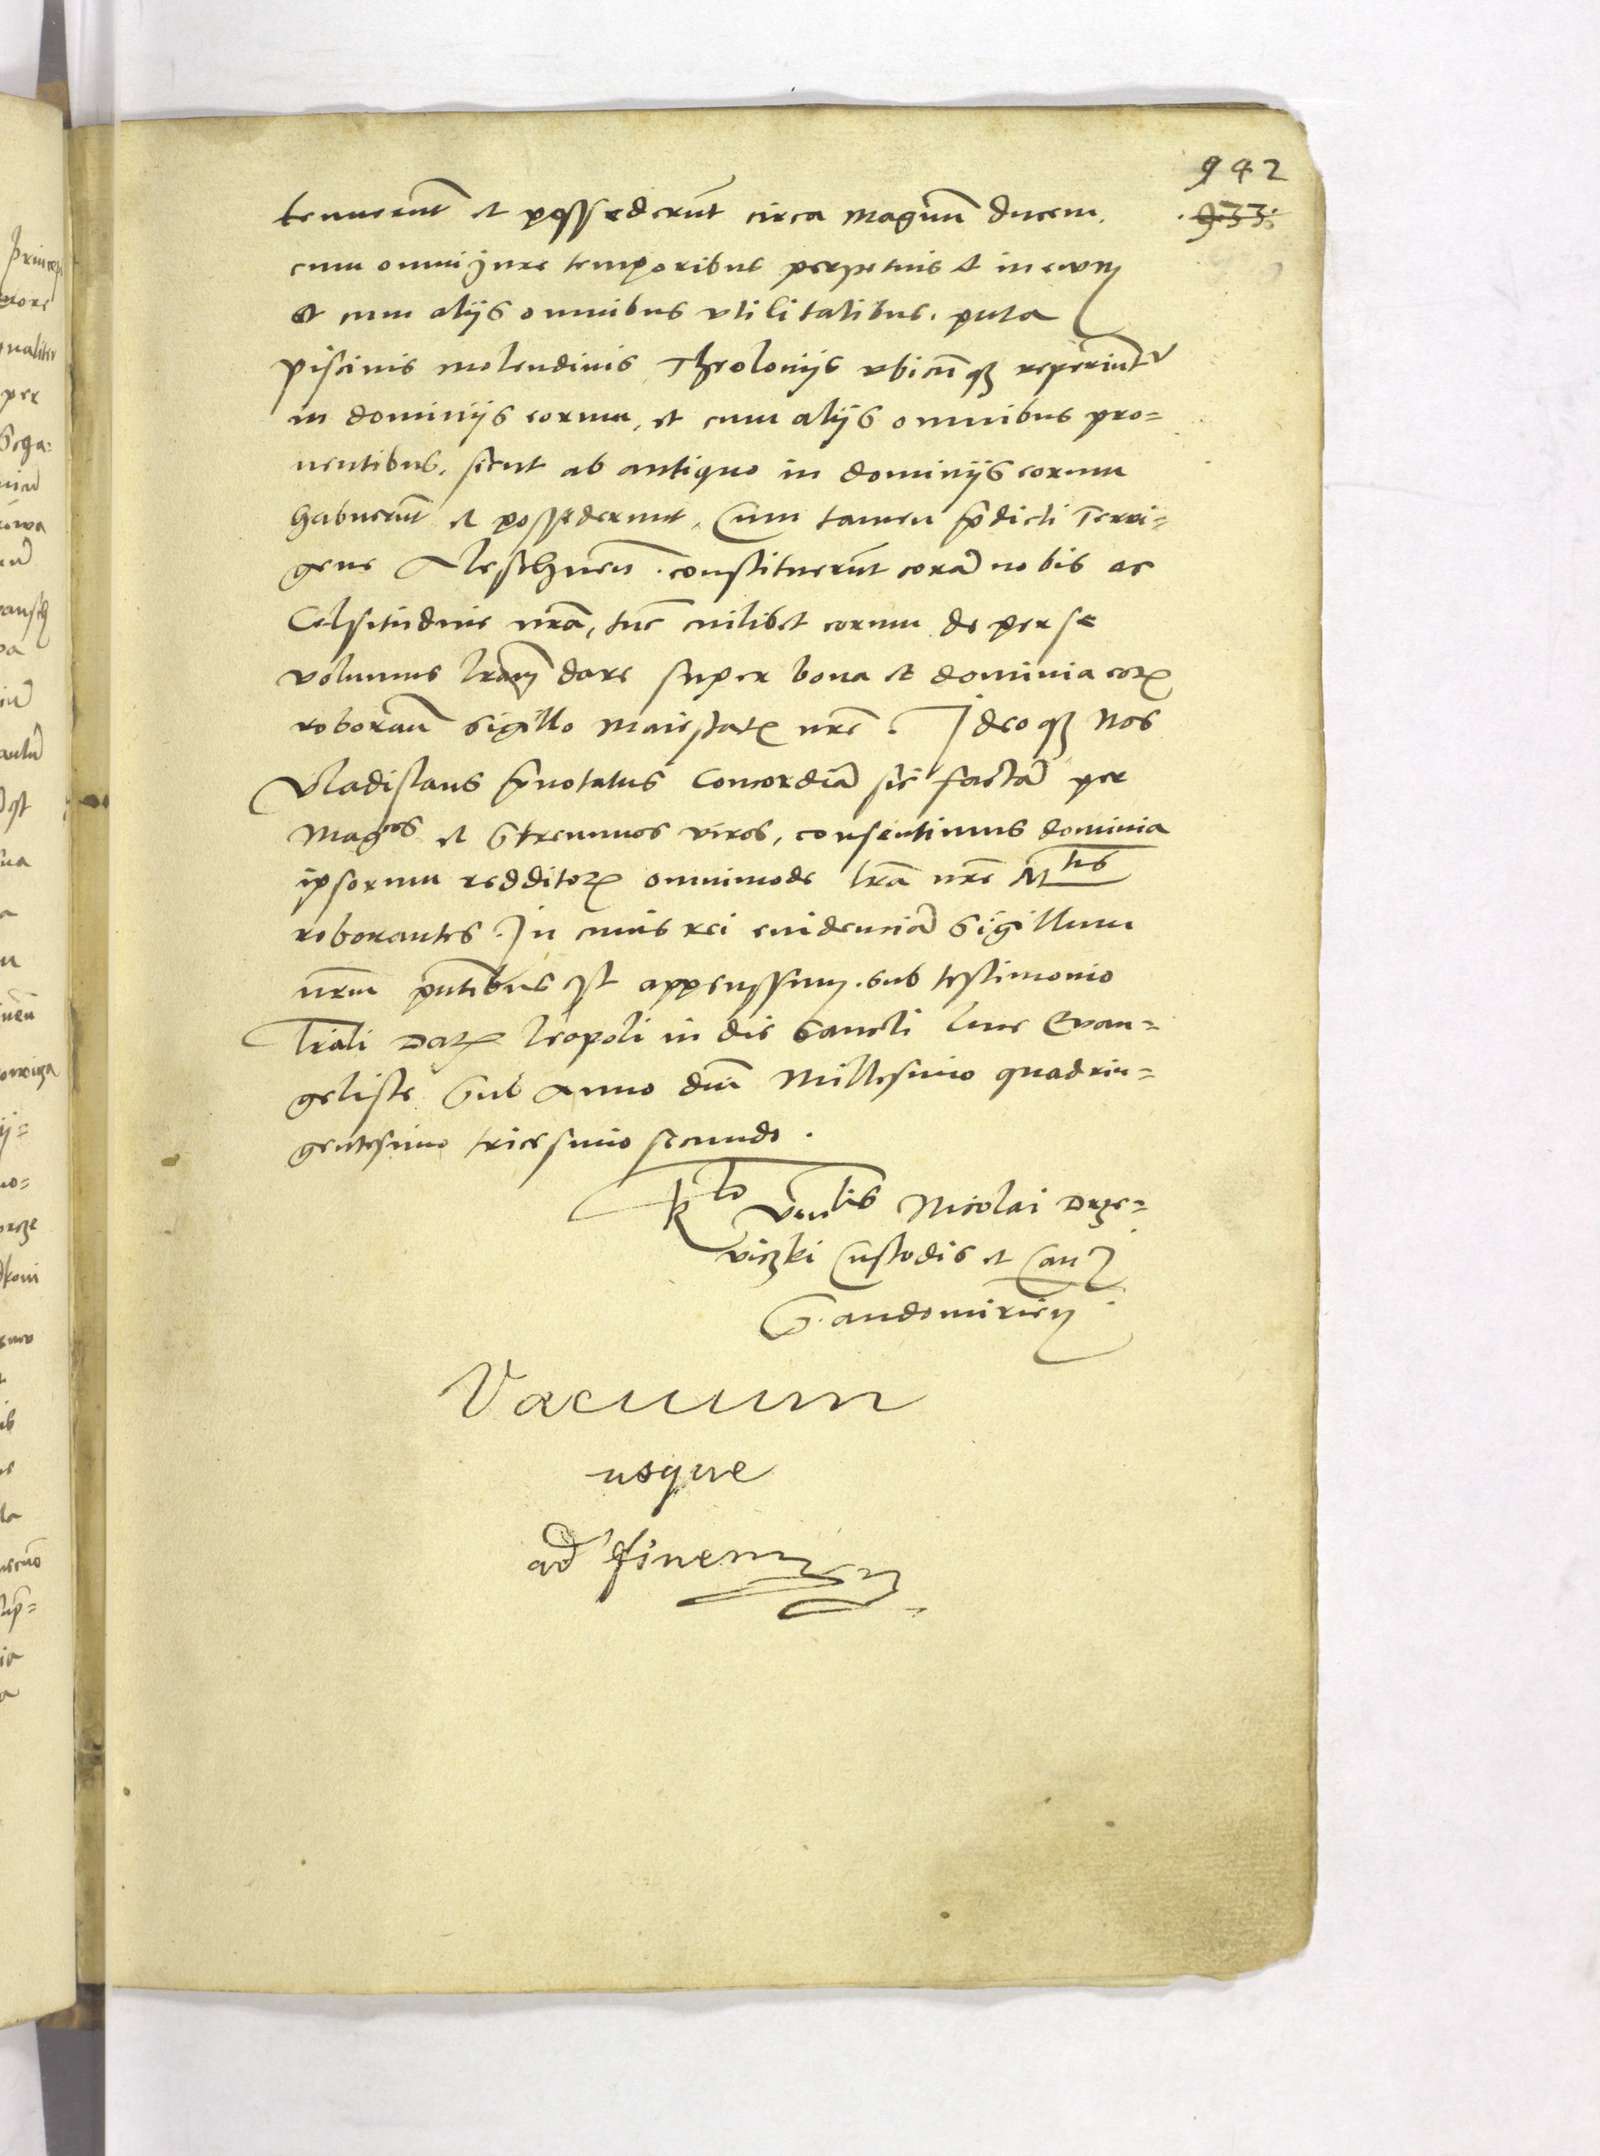 942
933
tenuerunt et possederunt circa Magnum ducem.
cum omni jure temporibus perpetuis et in ewm
et cum alijs omnibus vtilitatibus. puta
piscinis molendinis Theolonijs vbicunqз reperiuntr
in dominijs eorum, et cum alijs omnibus pro=
uentibus, sicut ab antiquo in dominijs eorum
habuerunt et possederunt. Cum tamen p̄dicti Terri=
gene Aleschnen̄. constituerunt corā nobis ac
Celsitudine nrā, tūc cuilibet eorum de per se
volumus lram dare super bona et dominia eorꝫ
roboratā sigillo Maiestatꝫ nrē. Ideoqз Nos
Vladislaus p̄notatus Concordiā sic factā per
Magcos et Strennuos viros, consentimus dominia
ipsorum redditorꝫ omnimode lrā nrē Mtis
roborantes. In cuius rei euidenciā Sigillum
nrm pntibus est appenssum. sub testimonio
lrāli Datꝫ leopoli in die Sancti luce Evan=
geliste Sub Anno dni Millesimo quadrin=
gentesimo tricesimo secundo.
Rto Venlis Nicolai Drze=
viczki Custodis et Can
Sandomirien
Vacuum
usque
ad finem